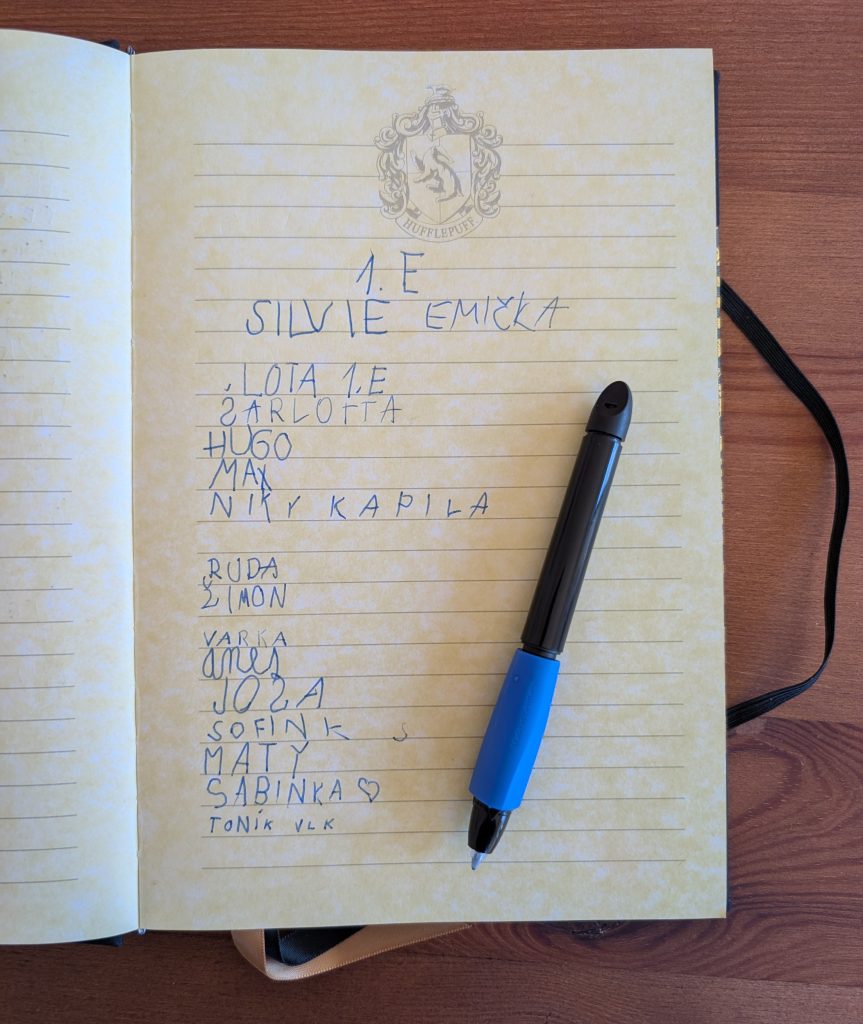 HUFFLEPUFF
1. E
SILVIE EMIČKA
LOTA 1.E
ŽARLOTTA
HUGO
MAX
NIKY KAPILA
RUDA
ŽIMON
VARKA
anes
JOZA
SOFINK S
MATY
SABINKA ♡
TONÍK VLK